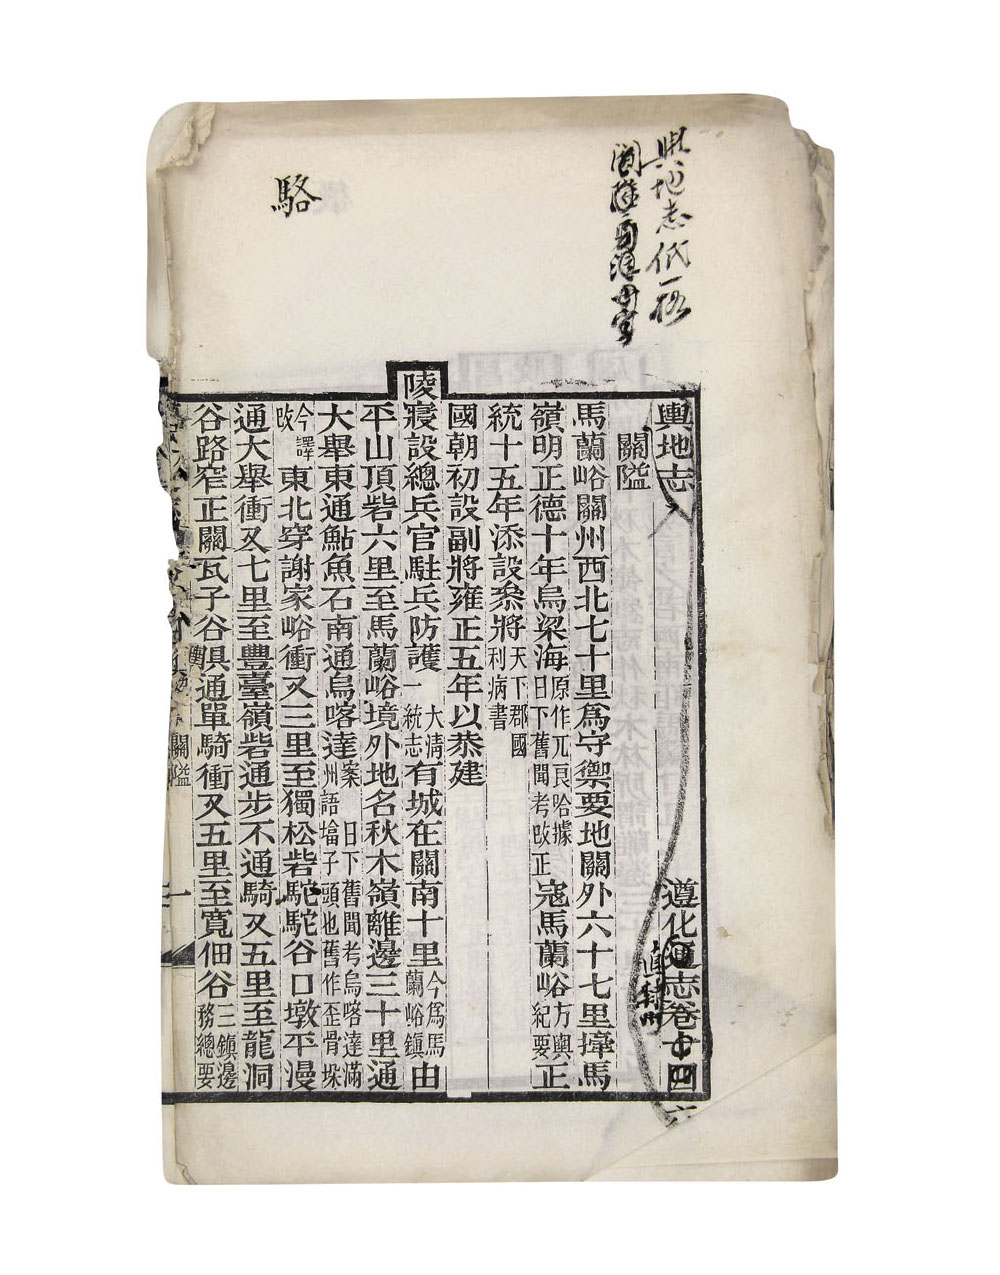 輿地志低一格
駱
輿地志 遵化通志卷十四
關隘
馬蘭峪關州西北七十里爲守禦要地關外六十七里撁馬
嶺明正德十年烏梁海原作兀良哈據日下舊聞考改正寇馬蘭峪方輿紀要正
統十五年添設叅將天下郡國利病書
國朝初設副將雍正五年以恭建
陵寢設總兵官駐兵防護大淸一統志有城在關南十里今爲馬蘭峪鎮由
平山頂砦六里至馬蘭峪境外地名秋木嶺離邊三十里通
大舉東通鮎魚石南通烏喀達案日下舊聞考烏喀達滿州語墖子頭也舊作歪骨垜
今譯改東北穿謝家峪衝又三里至獨松砦駝駝谷口墩平漫
通大舉衝又七里至豐臺嶺砦通步不通騎又五里至龍洞
谷路窄正關瓦子谷俱通單騎衝又五里至寬佃谷三鎮邊務總要
關隘